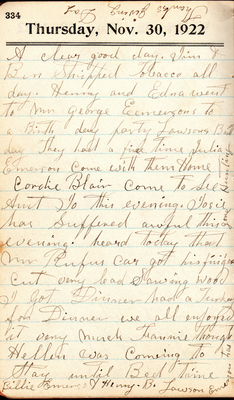 334
Thanks giving Day
Thursday, Nov. 30, 1922
A clear good day. Jim &
Ben Stripped tobacco all
day. Henry and Edna went
to Mr George Eemersons to
a birth day party Lawsons B
day They had a fine time Julia
Emerson Come with them Home
Coochie Blair Come to see
Aunt Jo this evening. Josie
has Suffered awful this
evening. heard today that
Mr Rufus Car got his finger
cut very bad Sawing wood
I Got Dinner had a Turkey
for Dinner we all enjoyed
it very much Fannie thought
Hellen was coming to
Stay until Bed time
Billie Emerson & Henry B. Lawson Emerson